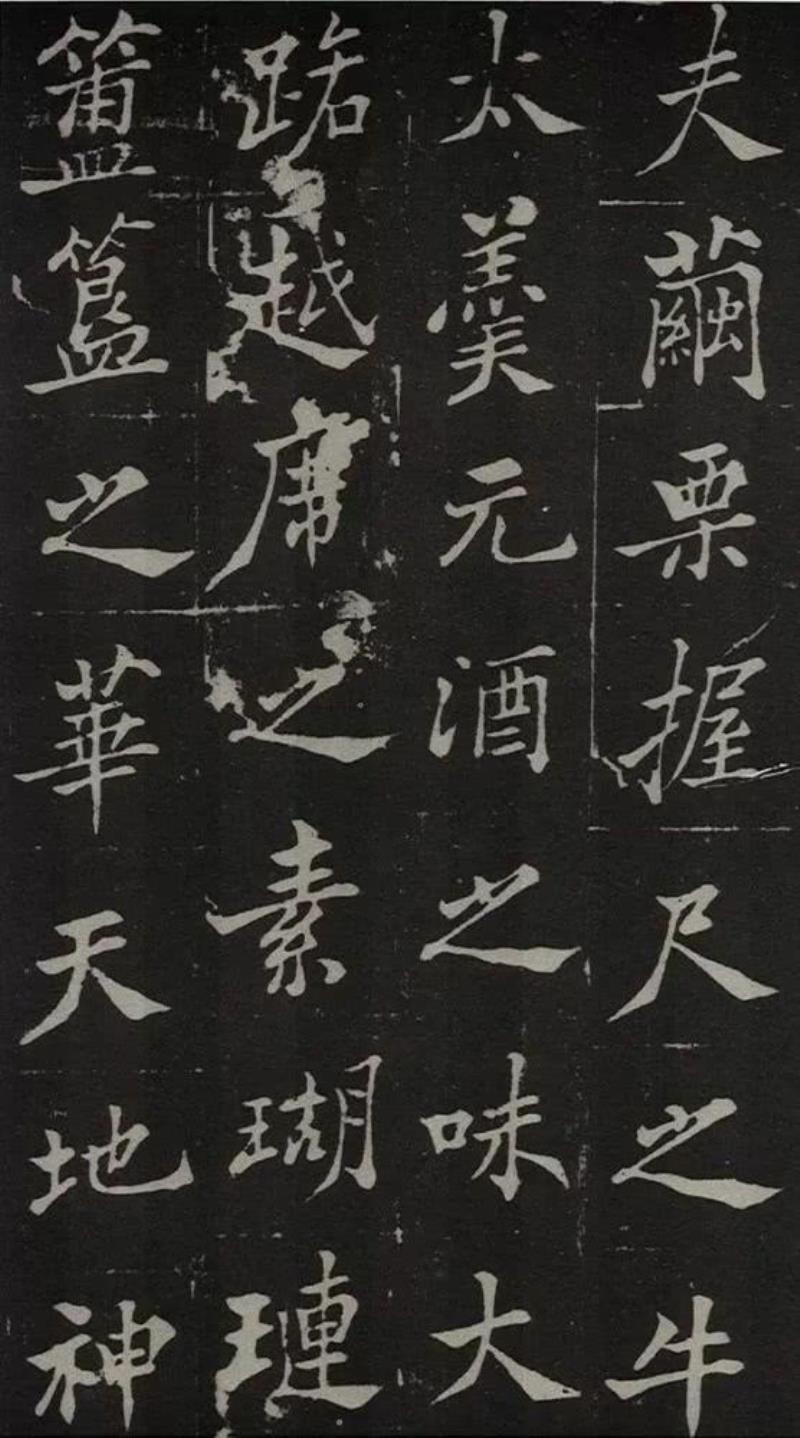 夫繭栗握尺之牛
太羹元酒之味大
路越席之素瑚璉
簠簋之華天地神